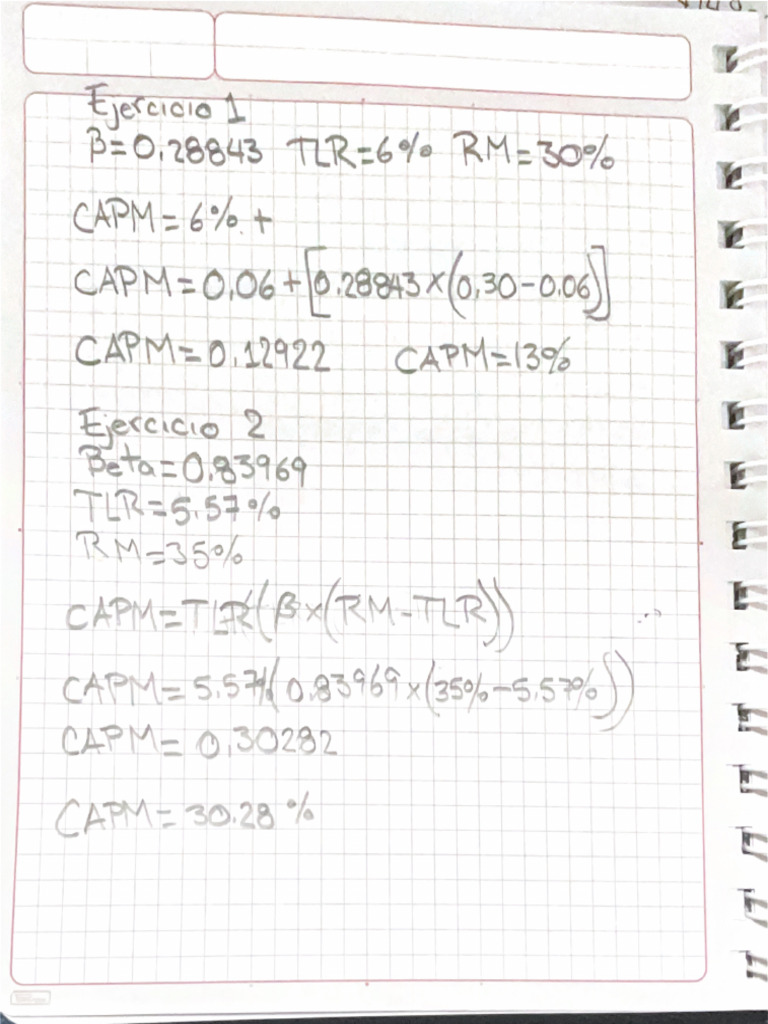 Ejercicio 1
β=0.28843 TLR=6% RM=30%
CAPM=6%+
CAPM=0.06+[0.28843×(0.30-0.06)]
CAPM=0.12922 CAPM=13%
Ejercicio 2
Beta=0.83969
TLR=5.57%
RM=35%
CAPM=TLR(β×(RM-TLR))
CAPM=5.57%(0.83969×(35%-5.57%))
CAPM=0.30282
CAPM=30.28%